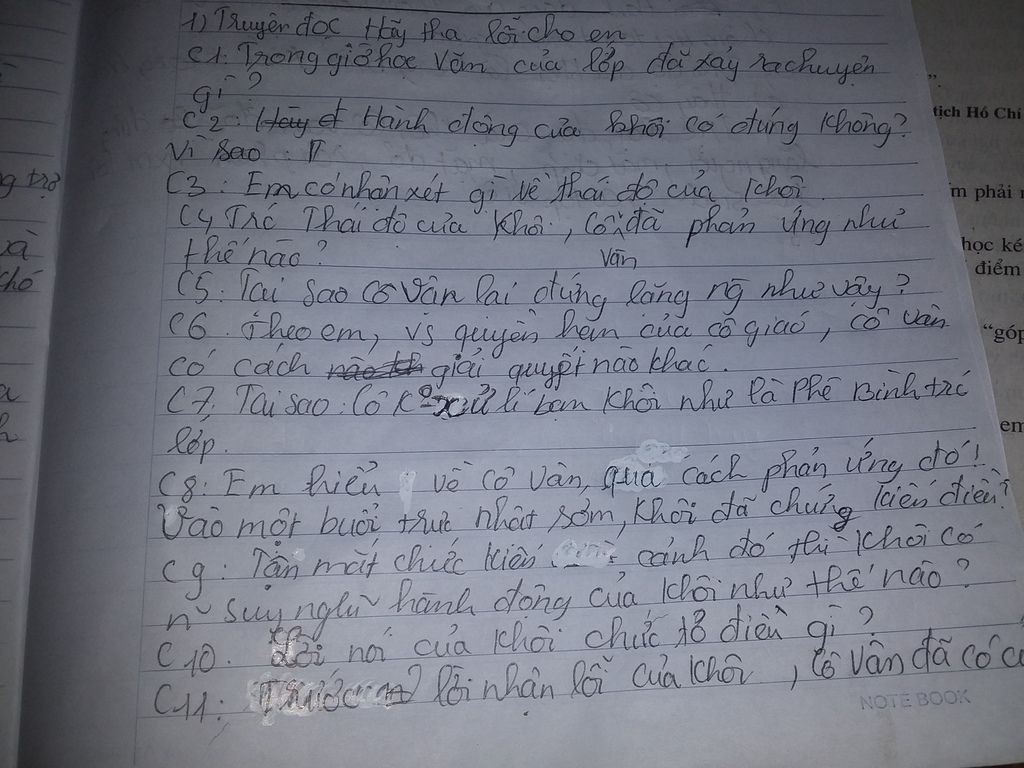 1) Truyện đọc Hãy tha lỗi cho em
C1. Trong giờ học Văn của lớp đã xảy ra chuyện
gì?
C2: Hành động của khôi có đúng không?
Vì sao:
C3: Em có nhận xét gì về thái độ của khôi
C4, Trc Thái độ của Khôi, Cô Vân đã phản ứng như
thế nào?
C5: Tại sao Cô Vân lại đứng lặng ng như vậy?
C6. theo em, vs quyền hạn của cô giáo, cô vân
có cách giải quyết nào khác.
C7, Tại sao: Cô K° xử lí bạn Khôi như là Phê Bình trc
lớp.
C8: Em hiểu về cô Vân, qua cách phản ứng đó!
Vào một buổi trực nhật sớm, khôi đã chứng kiến điều?
C9: Tận mắt chức kiến cảnh đó thì khôi có
n~ suy nghĩ hành động của khôi như thế nào?
C10. Lời nói của khôi chức tỏ điều gì?
C11: Trước lời nhận lỗi của khôi, Cô Vân đã có
NOTE BOOK
tịch Hồ Chí
phải
học kế
điểm
"góp
em